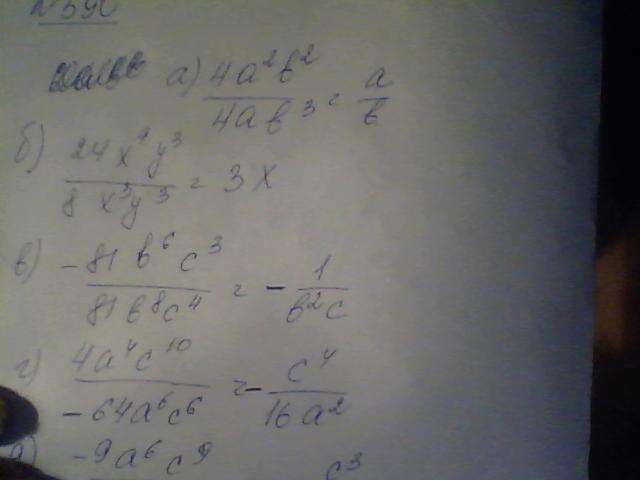 а) 4a²b² / 4ab³ = a / b
б) 24x⁴y³ / 8x³y³ = 3x
в) -81b⁶c³ / 81b⁸c⁴ = - 1 / b²c
г) 4a⁴c¹⁰ / -64a⁶c⁶ = - c⁴ / 16a²
д) -9a⁶c⁹ c³